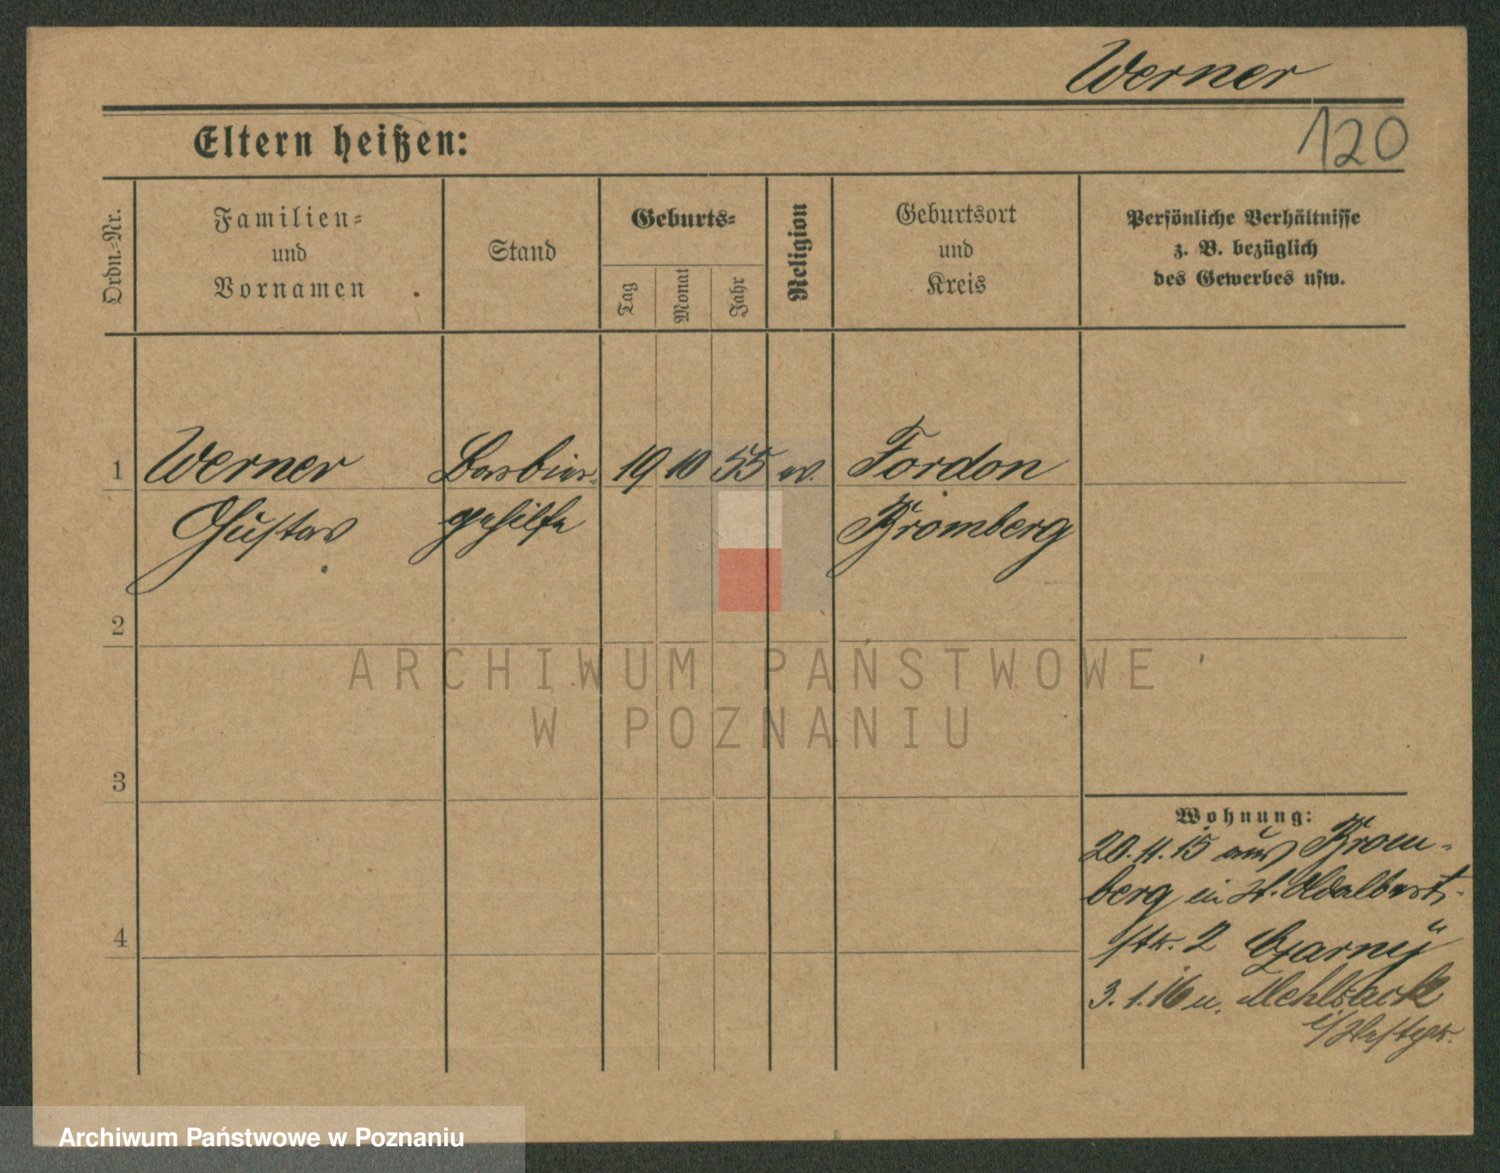 Werner
120
Eltern heißen:
Ordn.-Nr.
Familien-
und
Vornamen
Stand
Geburts-
Tag
Monat
Jahr
Religion
Geburtsort
und
Kreis
Persönliche Verhältnisse
z. B. bezüglich
des Gewerbes usw.
1
Werner
Gustav
Barbier-
gehilfe
19 10 55 ev.
Fordon
Bromberg
2
3
4
Wohnung:
20.11.15 aus Brom-
berg in St. Adalbert-
str. 2 Czarny
3.1.16 n. Mehlsack
ARCHIWUM PAŃSTWOWE
W POZNANIU
Archiwum Państwowe w Poznaniu